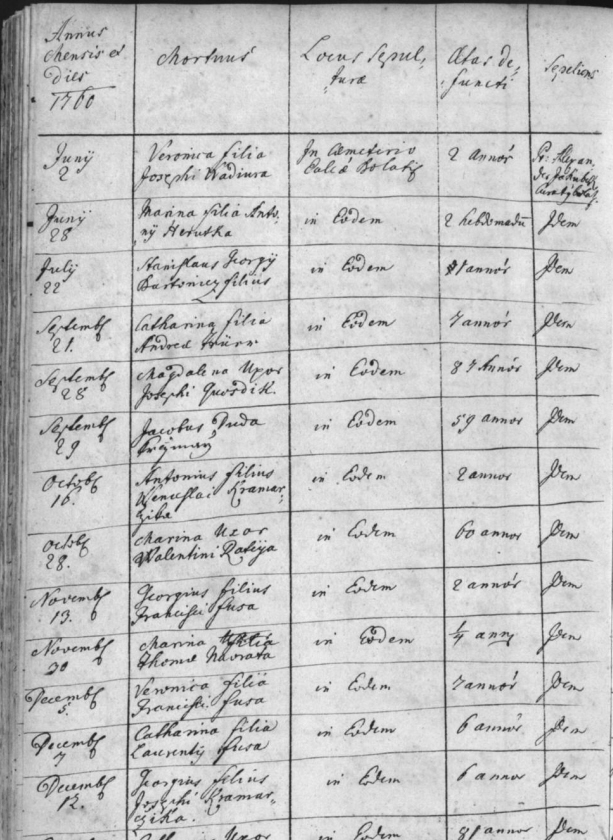 Annus
Mensis et
Dies
1760
Mortuus
Locus Sepul-
turæ
Ætas de-
functi
Sepeliens
Junÿ
2
Veronica filia
Josephi Wadiura
In Cæmeterio
2 annor
Pr: Alexan
Junÿ
28
Marina filia Anto-
nÿ Herutka
in Eodem
2 hebdomadu
Idem
Julÿ
22
Stanislaus Georgÿ
Bartonicz filius
in Eodem
1 annor
Idem
Septemb
21.
Catharina filia
Andreæ
in Eodem
7 annor
Idem
Septemb
28
Magdalena Uxor
Josephi Quosdik
in Eodem
87 Annor
Idem
Septemb
29
Jacobus Duda
in Eodem
59 annor
Idem
Octob
16.
Antonius filius
Wenceslai Kramar-
zika
in Eodem
2 annor
Idem
Octob
28.
Marina Uxor
Walentini
in Eodem
60 annor
Idem
Novemb
13.
Georgius filius
Francisci Fusa
in Eodem
2 annor
Idem
Novemb
30
Marina filia
Thomæ Navrata
in Eodem
1/4 anni
Idem
Decemb
5.
Veronica filia
Francisci Fusa
in Eodem
7 annor
Idem
Decemb
7
Catharina filia
Laurentÿ Fusa
in Eodem
6 annor
Idem
Decemb
12.
Georgius filius
Josephi Kramar-
zika.
in Eodem
6 annor
Idem
Uxor
in Eodem
annor
Idem